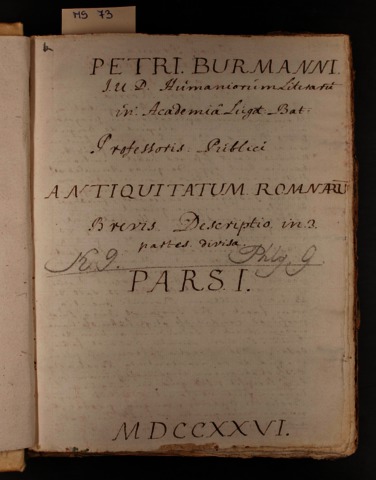 MS 73
PETRI. BURMANNI.
J. U. D. Humaniorum Literarū
in Academiâ Lugd. Bat.
Professoris Publici
ANTIQUITATUM ROMNARŪ
Brevis Descriptio in 3.
partes divisa.
K. 9. Phly. 9
PARS. I.
MDCCXXVI.